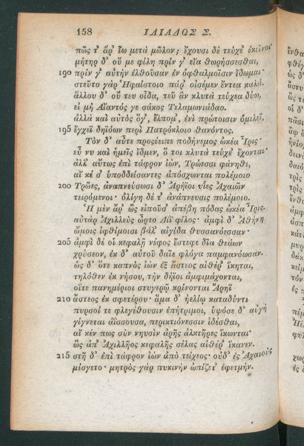 158 ΙΛΙΑΔΟΣ Σ.
πῶς τ' ἄρ' ἴω μετὰ μῶλον; ἔχουσι δὲ τεύχε' ἐκεῖνοι·
μήτηρ δ' οὔ με φίλη πρίν γ' εἴα θωρήσσεσθαι,
190 πρίν γ' αὐτὴν ἐλθοῦσαν ἐν ὀφθαλμοῖσιν ἴδωμαι·
στεῦτο γὰρ Ἡφαίστοιο πάρ' οἰσέμεν ἔντεα καλά.
ἄλλου δ' οὔ τευ οἶδα, τεῦ ἂν κλυτὰ τεύχεα δύω,
εἰ μὴ Αἴαντός γε σάκος Τελαμωνιάδαο.
ἀλλὰ καὶ αὐτὸς ὅγ', ἔλπομ', ἐνὶ πρώτοισιν ὁμιλεῖ,
195 ἔγχεϊ δηϊόων περὶ Πατρόκλοιο θανόντος.
Τὸν δ' αὖτε προσέειπε ποδήνεμος ὠκέα Ἶρις·
εὖ νυ καὶ ἡμεῖς ἴδμεν, ὅ τοι κλυτὰ τεύχε' ἔχονται·
ἀλλ' αὕτως ἐπὶ τάφρον ἰών, Τρώεσσι φάνηθι,
αἴ κέ σ' ὑποδδείσαντες ἀπόσχωνται πολέμοιο
200 Τρῶες, ἀναπνεύσωσι δ' Ἀρήϊοι υἷες Ἀχαιῶν
τειρόμενοι· ὀλίγη δέ τ' ἀνάπνευσις πολέμοιο.
Ἡ μὲν ἄρ' ὣς εἰποῦσ' ἀπέβη πόδας ὠκέα Ἶρις·
αὐτὰρ Ἀχιλλεὺς ὦρτο Διῒ φίλος· ἀμφὶ δ' Ἀθήνη
ὤμοις ἰφθίμοισι βάλ' αἰγίδα θυσσανόεσσαν·
205 ἀμφὶ δέ οἱ κεφαλῇ νέφος ἔστεφε δῖα θεάων
χρύσεον, ἐκ δ' αὐτοῦ δαῖε φλόγα παμφανόωσαν.
ὡς δ' ὅτε καπνὸς ἰὼν ἐξ ἄστεος αἰθέρ' ἵκηται,
τηλόθεν ἐκ νήσου, τὴν δήϊοι ἀμφιμάχονται,
οἵτε πανημέριοι στυγερῷ κρίνονται Ἄρηϊ
210 ἄστεος ἐκ σφετέρου· ἅμα δ' ἠελίῳ καταδύντι
πυρσοί τε φλεγέθουσιν ἐπήτριμοι, ὑψόσε δ' αὐγὴ
γίγνεται ἀΐσσουσα, περικτιόνεσσιν ἰδέσθαι,
αἴ κέν πως σὺν νηυσὶν ἀρῆς ἀλκτῆρες ἵκωνται·
ὣς ἀπ' Ἀχιλλῆος κεφαλῆς σέλας αἰθέρ' ἵκανεν.
215 στῆ δ' ἐπὶ τάφρον ἰὼν ἀπὸ τείχεος· οὐδ' ἐς Ἀχαιοὺς
μίσγετο· μητρὸς γὰρ πυκινὴν ὠπίζετ' ἐφετμήν.